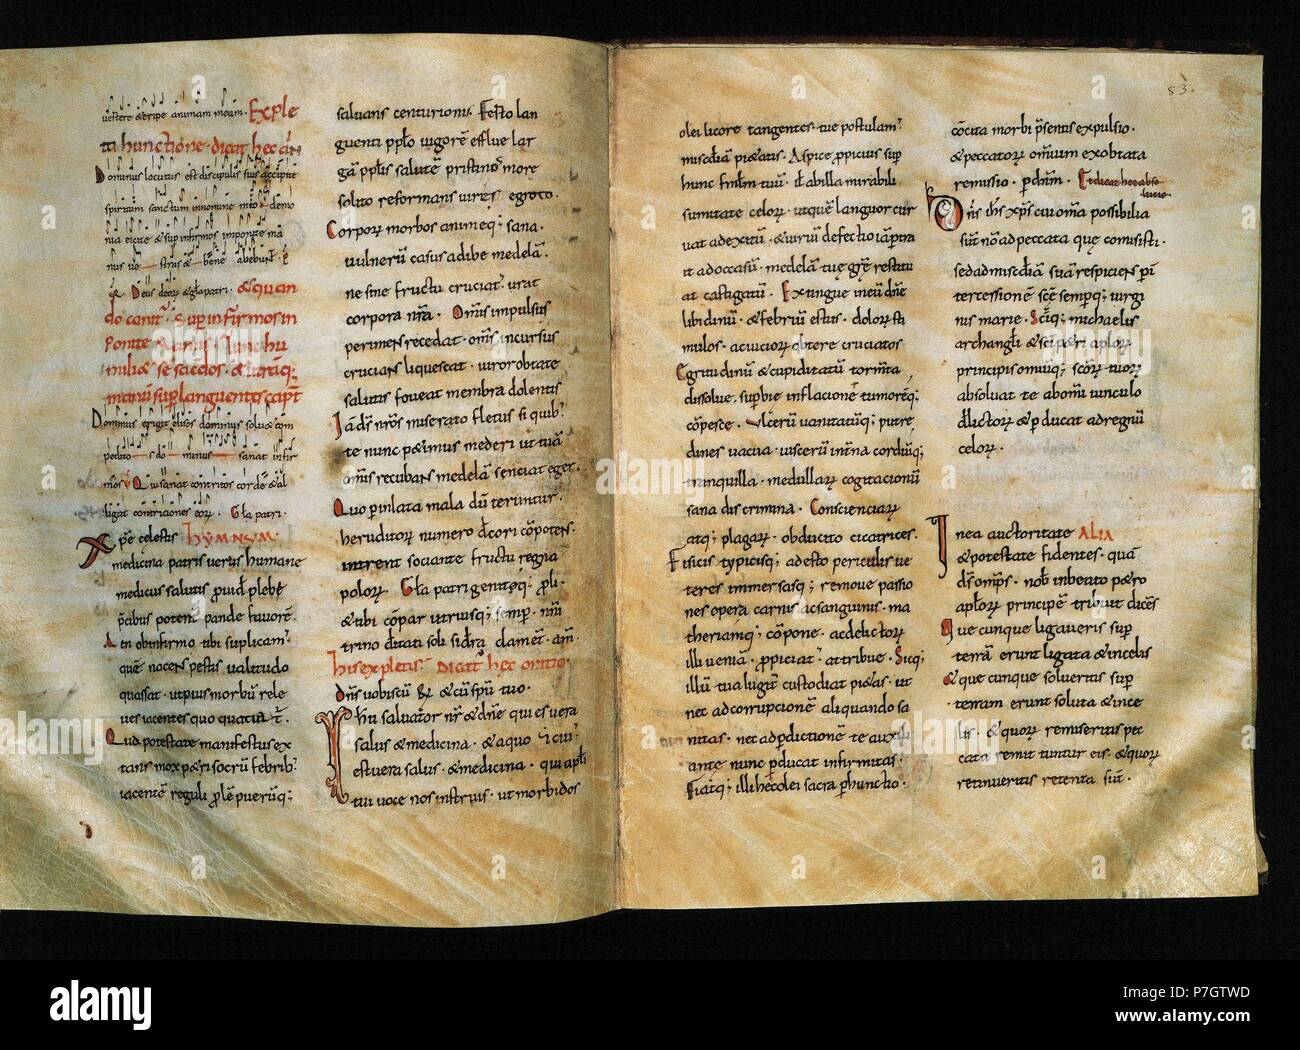 uestere & eripe animam meam. Exple
ta hunctione. dicat hec
Dominus locutus est discipulis suis accipite
spiritum sanctum innomine demo
nia eicite & sup infirmos imponite ma
nus ues tras & bene
Deus deorum & gla patri. & quan
do cant. Sup infirmos in
ponite manus. Tunc hu
miliæ se sacdos.
manū sup languentes
Dominus erigit elisos dominus soluæ com
pedito s do minus sanat infir
mos Qui sanat contritos corde & al
ligat contriciones eorum. Gla patri.
Xpe celestis HYMNUM
medicina patris uerus humane
medicus salutis prouide plebē
potent pande fauorē.
ob infirmo tibi suplicam
quē nocens pestis ualitudo
quassat. ut pius morbū rele
ues iacentes quo quatit.
Qui potestate manifestus ex
tans mox pætri socrū febrib;
iacentē reguli plē puerūq;
saluans centurionis. Festo lan
guenti pplo uigorē efflue lar
gā pplis salutē pristino more
solito reformans uires egroto.
Corporū morbos animeq; sana.
uulnerū casus adibe medelā.
ne sine fructu cruciat urat
corpora nrā. Omīs impulsus
perimens recedat. omīs incursus
crucians liquescat. uigor obtate
salutis foueat membra dolentis
Iā ds nrōs miserato fletus
te nunc pætimus mederi ut tuā
omīs recubans medelā senciat eger.
Quo per inlata mala dū teruntur.
heruditorū numero decori cōpotens.
intrent sociante fructu regna
polorū. Gla patri
& tibi cōpar utriusq; semper
trino
his expletis. Dicat hec oratio.
Dns uobiscū R & cū spū tuo.
Ihu saluator nr & dne qui es uera
salus & medicina. & a quo
est uera salus. & medicina. qui apli
tui uoce nos instruis. ut morbidos
83.
olei licore tangentes. tue postulam
misdiam piætatis. Aspice ppicius sup
hunc fmlm tuū. & abilla mirabili
sumitate celorū. ut quē languor cur
uat ad exitū. & uirū defectio iam
it ad occasū. medelā tuę grę restitu
at castigatū. Extingue in eū dne
libidinū. & febriū estus. dolorū sti
mulos. ac uiciorū obtere cruciatos
Egritudinū & cupiditatū tormta
dissolue. supbie inflacione tumorēq;
cōpesce. Ulcerū uanitatūq; putre
dines uacua. uiscerū intna cordiūq;
tranquilla. medullarū cogitacionū
sana discrimina. Conscienciarū
atq; plagarū. obducito cicatrices.
Fisicis typicisq; adesto periculis ue
teres immensasq; remoue passio
nes opera carnis ac sanguinis. ma
theriamq; cōpone. ac delictorū
illi ueniā. ppiciat attribue. Sicq;
illū tua iugit custodiat piætas. ut
nec ad corrupcionē aliquando sa
nitas. nec ad pditionē te auxili
ante nunc pducat infirmitas.
Fiatq; illi hec olei sacra phunctio.
cōcita morbi psentis expulsio.
& peccatorū omīum exobtata
remissio. p dnm. Et dicat hec abso
lucio.
Dns ihs xps cui omīa possibilia
sūt nō ad peccata quę comisisti.
sed ad misdiā suā respiciens p in
tercessionē scē semperq; uirgi
nis marie. Sciq; michaelis
archangli & sci pætri aplorū
principis omiūq; scorū tuorū
absoluat te ab omī uinculo
delictorū & pducat ad regnū
celorū.
In ea auctoritate ALIA
& potestate fidentes. quā
ds omps. nob in beato pætro
aplorū principē tribuit dicēs
Que cunque ligaueris sup
terrā erunt ligata & in celis
& que cunque solueritis sup
terram erunt soluta & in ce
lis. & quorū remiseritis pec
cata remittuntur eis. & quorū
retinueritis retenta sūt.
alamy
Image ID: P7GTWD
www.alamy.com